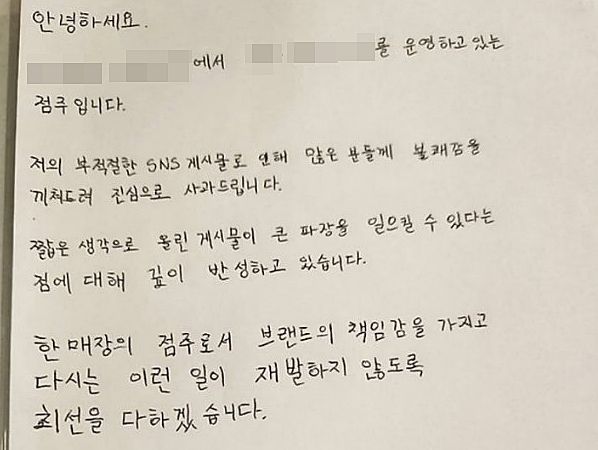 안녕하세요.
에서 를 운영하고 있는
점주입니다.
저의 부적절한 SNS 게시물로 인해 많은 분들께 불쾌감을
끼쳐드려 진심으로 사과드립니다.
짧은 생각으로 올린 게시물이 큰 파장을 일으킬 수 있다는
점에 대해 깊이 반성하고 있습니다.
한 매장의 점주로서 브랜드의 책임감을 가지고
다시는 이런 일이 재발하지 않도록
최선을 다하겠습니다.